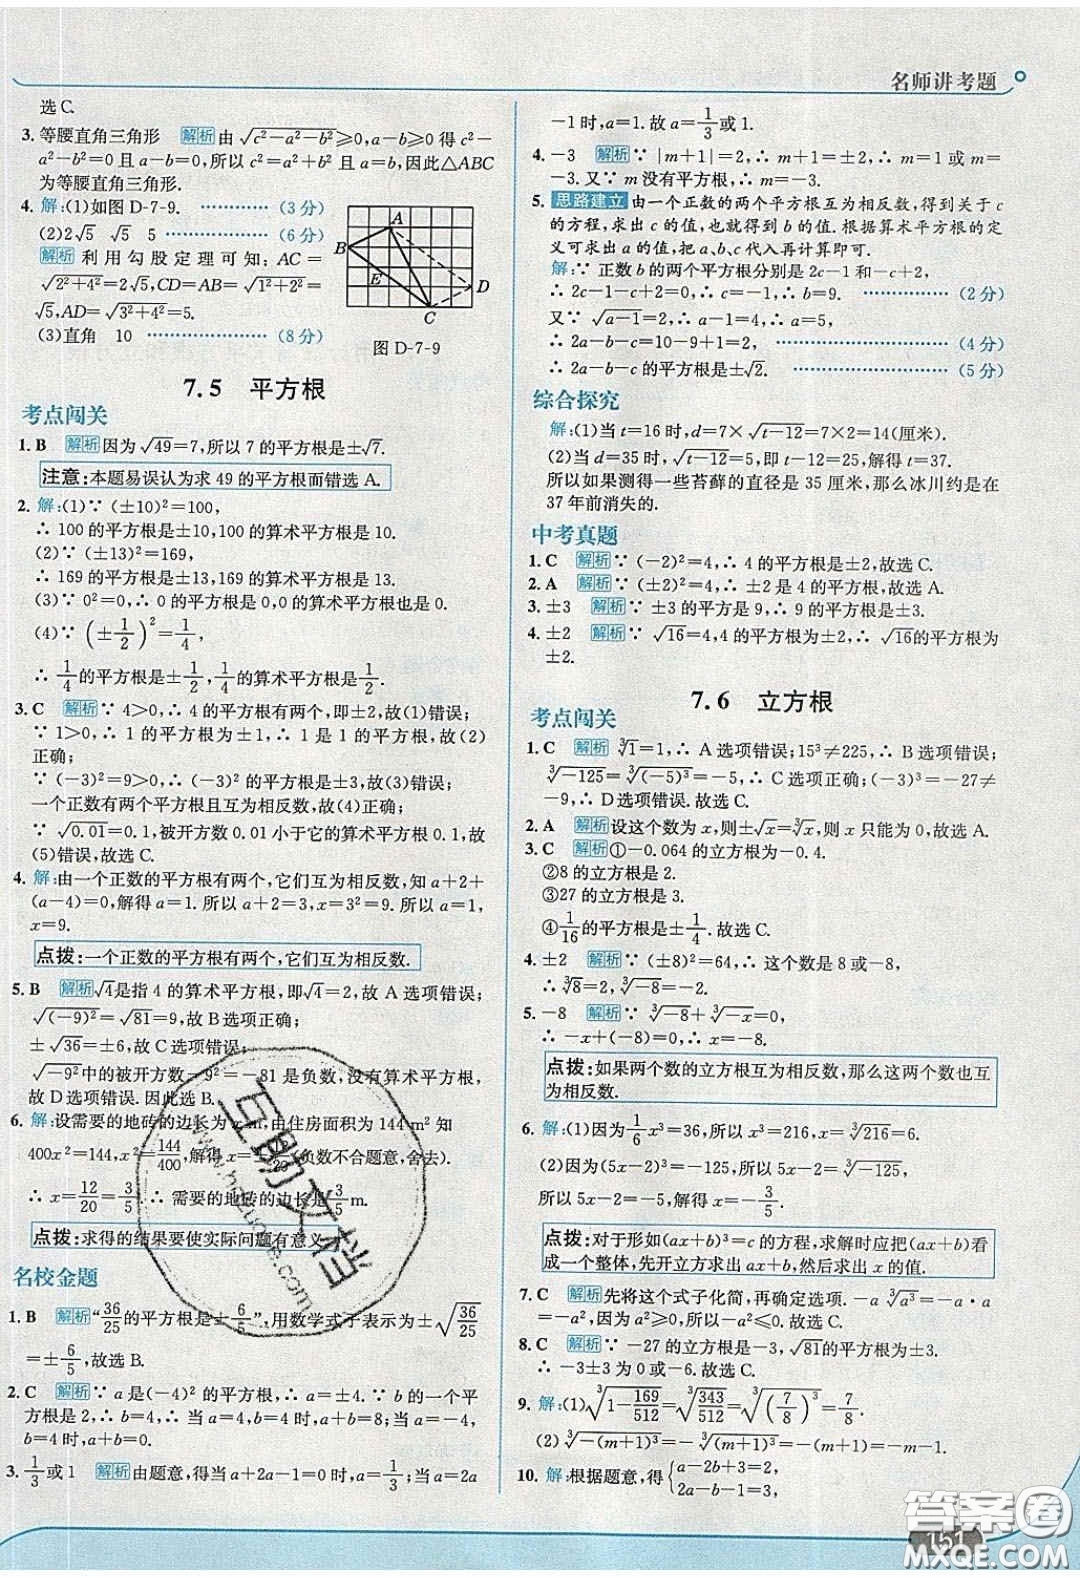 名师讲考题
选C.
3. 等腰直角三角形 解析 由√(c²−a²−b²)≥0,a−b≥0 得 c²−
a²−b²=0 且 a−b=0,所以 c²=a²+b² 且 a=b,因此△ABC
为等腰直角三角形.
4. 解:(1)如图 D-7-9. ………… (3 分)
(2)2√5 √5 5 ………… (6 分)
解析 利用勾股定理可知:AC=
√(2²+4²)=2√5,CD=AB=√(1²+2²)=
√5,AD=√(3²+4²)=5.
(3)直角 10 ………… (8 分)
A
B
E
D
C
图 D-7-9
7.5 平方根
考点闯关
1. B 解析 因为√49=7,所以 7 的平方根是±√7.
注意:本题易误认为求 49 的平方根而错选 A.
2. 解:(1)∵ (±10)²=100,
∴ 100 的平方根是±10,100 的算术平方根是10.
(2)∵ (±13)²=169,
∴ 169 的平方根是±13,169 的算术平方根是13.
(3)∵ 0²=0,∴ 0 的平方根是0,0的算术平方根也是0.
(4)∵ (±1/2)²=1/4,
∴ 1/4的平方根是±1/2,1/4的算术平方根是1/2.
3. C 解析 ∵ 4>0,∴ 4 的平方根有两个,即±2,故(1)错误;
∵ 1>0,∴ 1 的平方根为±1,∴ 1 是 1 的平方根,故(2)
正确;
∵ (−3)²=9>0,∴ (−3)² 的平方根是±3,故(3)错误;
一个正数有两个平方根且互为相反数,故(4)正确;
∵ √0.01=0.1,被开方数 0.01 小于它的算术平方根 0.1,故
(5)错误,故选 C.
4. 解:由一个正数的平方根有两个,它们互为相反数,知 a+2+
(a−4)=0,解得 a=1. 所以 a+2=3,x=3²=9. 所以 a=1,
x=9.
点拨:一个正数的平方根有两个,它们互为相反数.
5. B 解析 √4是指 4 的算术平方根,即√4=2,故 A 选项错误;
√(−9)²=√81=9,故 B 选项正确;
±√36=±6,故 C 选项错误;
√−9²中的被开方数−9²=−81 是负数,没有算术平方根,
故 D 选项错误. 因此选 B.
6. 解:设需要的地砖的边长为 x m,由住房面积为 144 m² 知
400x²=144,x²=144/400,解得 x=±12/20(负数不合题意,舍去).
∴ x=12/20=3/5.∴ 需要的地砖的边长是3/5 m.
点拨:求得的结果要使实际问题有意义.
名校金题
1. B 解析 “36/25的平方根是±6/5”,用数学式子表示为±√(36/25)
=±6/5,故选 B.
2. C 解析 ∵ a 是(−4)² 的平方根,∴ a=±4. ∵ b 的一个平
方根是 2,∴ b=4,∴ 当 a=4,b=4 时,a+b=8;当 a=−4,
b=4 时,a+b=0.
3. 1/3或 1 解析 由题意,得当 a+2a−1=0 时,a=1/3;当 a=2a
−1时,a=1. 故 a=1/3或1.
4. −3 解析 ∵ |m+1|=2,∴ m+1=±2,∴ m=1 或 m=
−3. 又∵ m 没有平方根,∴ m=−3.
5. 思路建立 由一个正数的两个平方根互为相反数,得到关于 c
的方程,求出 c 的值,也就得到 b 的值. 根据算术平方根的定
义可求出 a 的值,把 a、b、c 代入再计算即可.
解:∵ 正数 b 的两个平方根分别是 2c−1 和−c+2,
∴ 2c−1−c+2=0,∴ c=−1,∴ b=9. ………… (2 分)
又∵ √(a−1)=2,∴ a−1=4,∴ a=5.
∴ 2a−b−c=10−9+1=2. ………… (4 分)
∴ 2a−b−c 的平方根是±√2. ………… (5 分)
综合探究
解:(1)当 t=16 时,d=7×√(t−12)=7×2=14(厘米).
(2)当 d=35 时,√(t−12)=5,即 t−12=25,解得 t=37.
所以如果测得一些苔藓的直径是 35 厘米,那么冰川约是在
37 年前消失的.
中考真题
1. C 解析 ∵ (−2)²=4,∴ 4 的平方根是±2,故选 C.
2. A 解析 ∵ (±2)²=4,∴ ±2 是 4 的平方根,故选 A.
3. ±3 解析 ∵ ±3 的平方是 9,∴ 9 的平方根是±3.
4. ±2 解析 ∵ √16=4,4 的平方根为±2,∴ √16的平方根为
±2.
7.6 立方根
考点闯关
1. C 解析 ∛1=1,∴ A 选项错误;15³≠225,∴ B 选项错误;
∛−125=∛(−5)³=−5,∴ C 选项正确;(−3)³=−27≠
−9,∴ D 选项错误. 故选 C.
2. A 解析 设这个数为 x,则±√x=∛x,则 x 只能为 0. 故选 A.
3. C 解析 ①−0.064 的立方根是−0.4.
②8 的立方根是 2.
③27 的立方根是 3.
④1/16的平方根是±1/4. 故选 C.
4. ±2 解析 ∵ (±8)²=64,∴ 这个数是 8 或−8,
∴ ∛8=2,∛−8=−2.
5. −8 解析 ∵ ∛−8+∛−x=0,
∴ −x+(−8)=0,∴ x=−8.
点拨:如果两个数的立方根互为相反数,那么这两个数也互
为相反数.
6. 解:(1)因为1/6x³=36,所以 x³=216,x=∛216=6.
(2)因为(5x−2)³=−125,所以 5x−2=∛−125,
所以 5x−2=−5,解得 x=−3/5.
点拨:对于形如(ax+b)³=c 的方程,求解时应把(ax+b)看
成一个整体,先开立方求出 ax+b,然后求出 x 的值.
7. C 解析 先将这个式子化简,再确定选项. −a∛a³=−a·a
=−a²,因为 a²≥0,所以−a²≤0. 故选 C.
8. C 解析 ∵ −27 的立方根是−3,√81的平方根是±3,
∴ −3±3 为 0 或−6. 故选 C.
9. 解:(1)∛(1−169/512)=∛(343/512)=∛(7/8)³=7/8.
(2)∛−(m+1)³=−∛(m+1)³=−(m+1)=−m−1.
10. 解:根据题意,得{a−2b+3=2,
2a−b−1=3,
151
互助文档
www.hzuore.com
答案圈
MXQE.COM